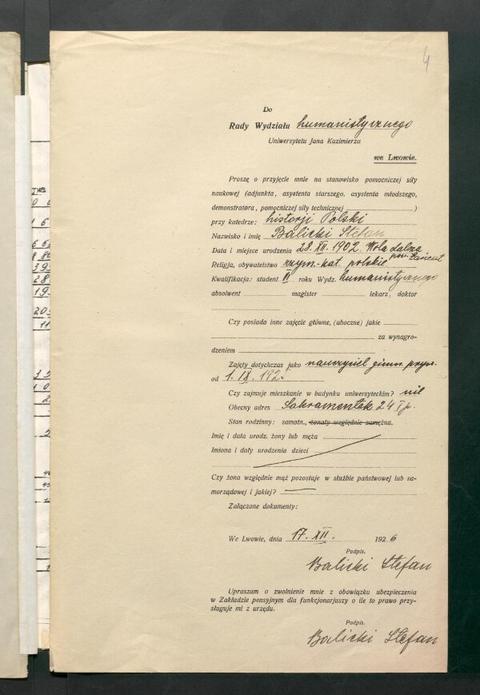 4
Do
Rady Wydziału humanistycznego
Uniwersytetu Jana Kazimierza
we Lwowie.
Proszę o przyjęcie mnie na stanowisko pomocniczej siły
naukowej (adjunkta, asystenta starszego, asystenta młodszego,
demonstratora, pomocniczej siły technicznej)
przy katedrze: historji Polski
Nazwisko i imię Balicki Stefan
Data i miejsce urodzenia 28. XII. 1902. Wola Dalna
pow. Łańcut
Religja, obywatelstwo rzym.-kat. polskie
Kwalifikacja: student II roku Wydz. humanistycznego
absolwent magister lekarz, doktor
Czy posiada inne zajęcie główne, (uboczne) jakie
za wynagro-
dzeniem
Zajęty dotychczas jako nauczyciel gimn. pryw.
od 1. IX. 192
Czy zajmuje mieszkanie w budynku uniwersyteckim? nie
Obecny adres Sakramentek 24 I p.
Stan rodzinny: samotn., żonaty względnie zamężna.
Imię i data urodz. żony lub męża
Imiona i daty urodzenia dzieci
Czy żona względnie mąż pozostaje w służbie państwowej lub sa-
morządowej i jakiej? —
Załączone dokumenty:
We Lwowie, dnia 17. XII. 1926
Podpis.
Balicki Stefan
Upraszam o zwolnienie mnie z obowiązku ubezpieczenia
w Zakładzie pensyjnym dla funkcjonarjuszy o ile to prawo przy-
sługuje mi z urzędu.
Podpis.
Balicki Stefan